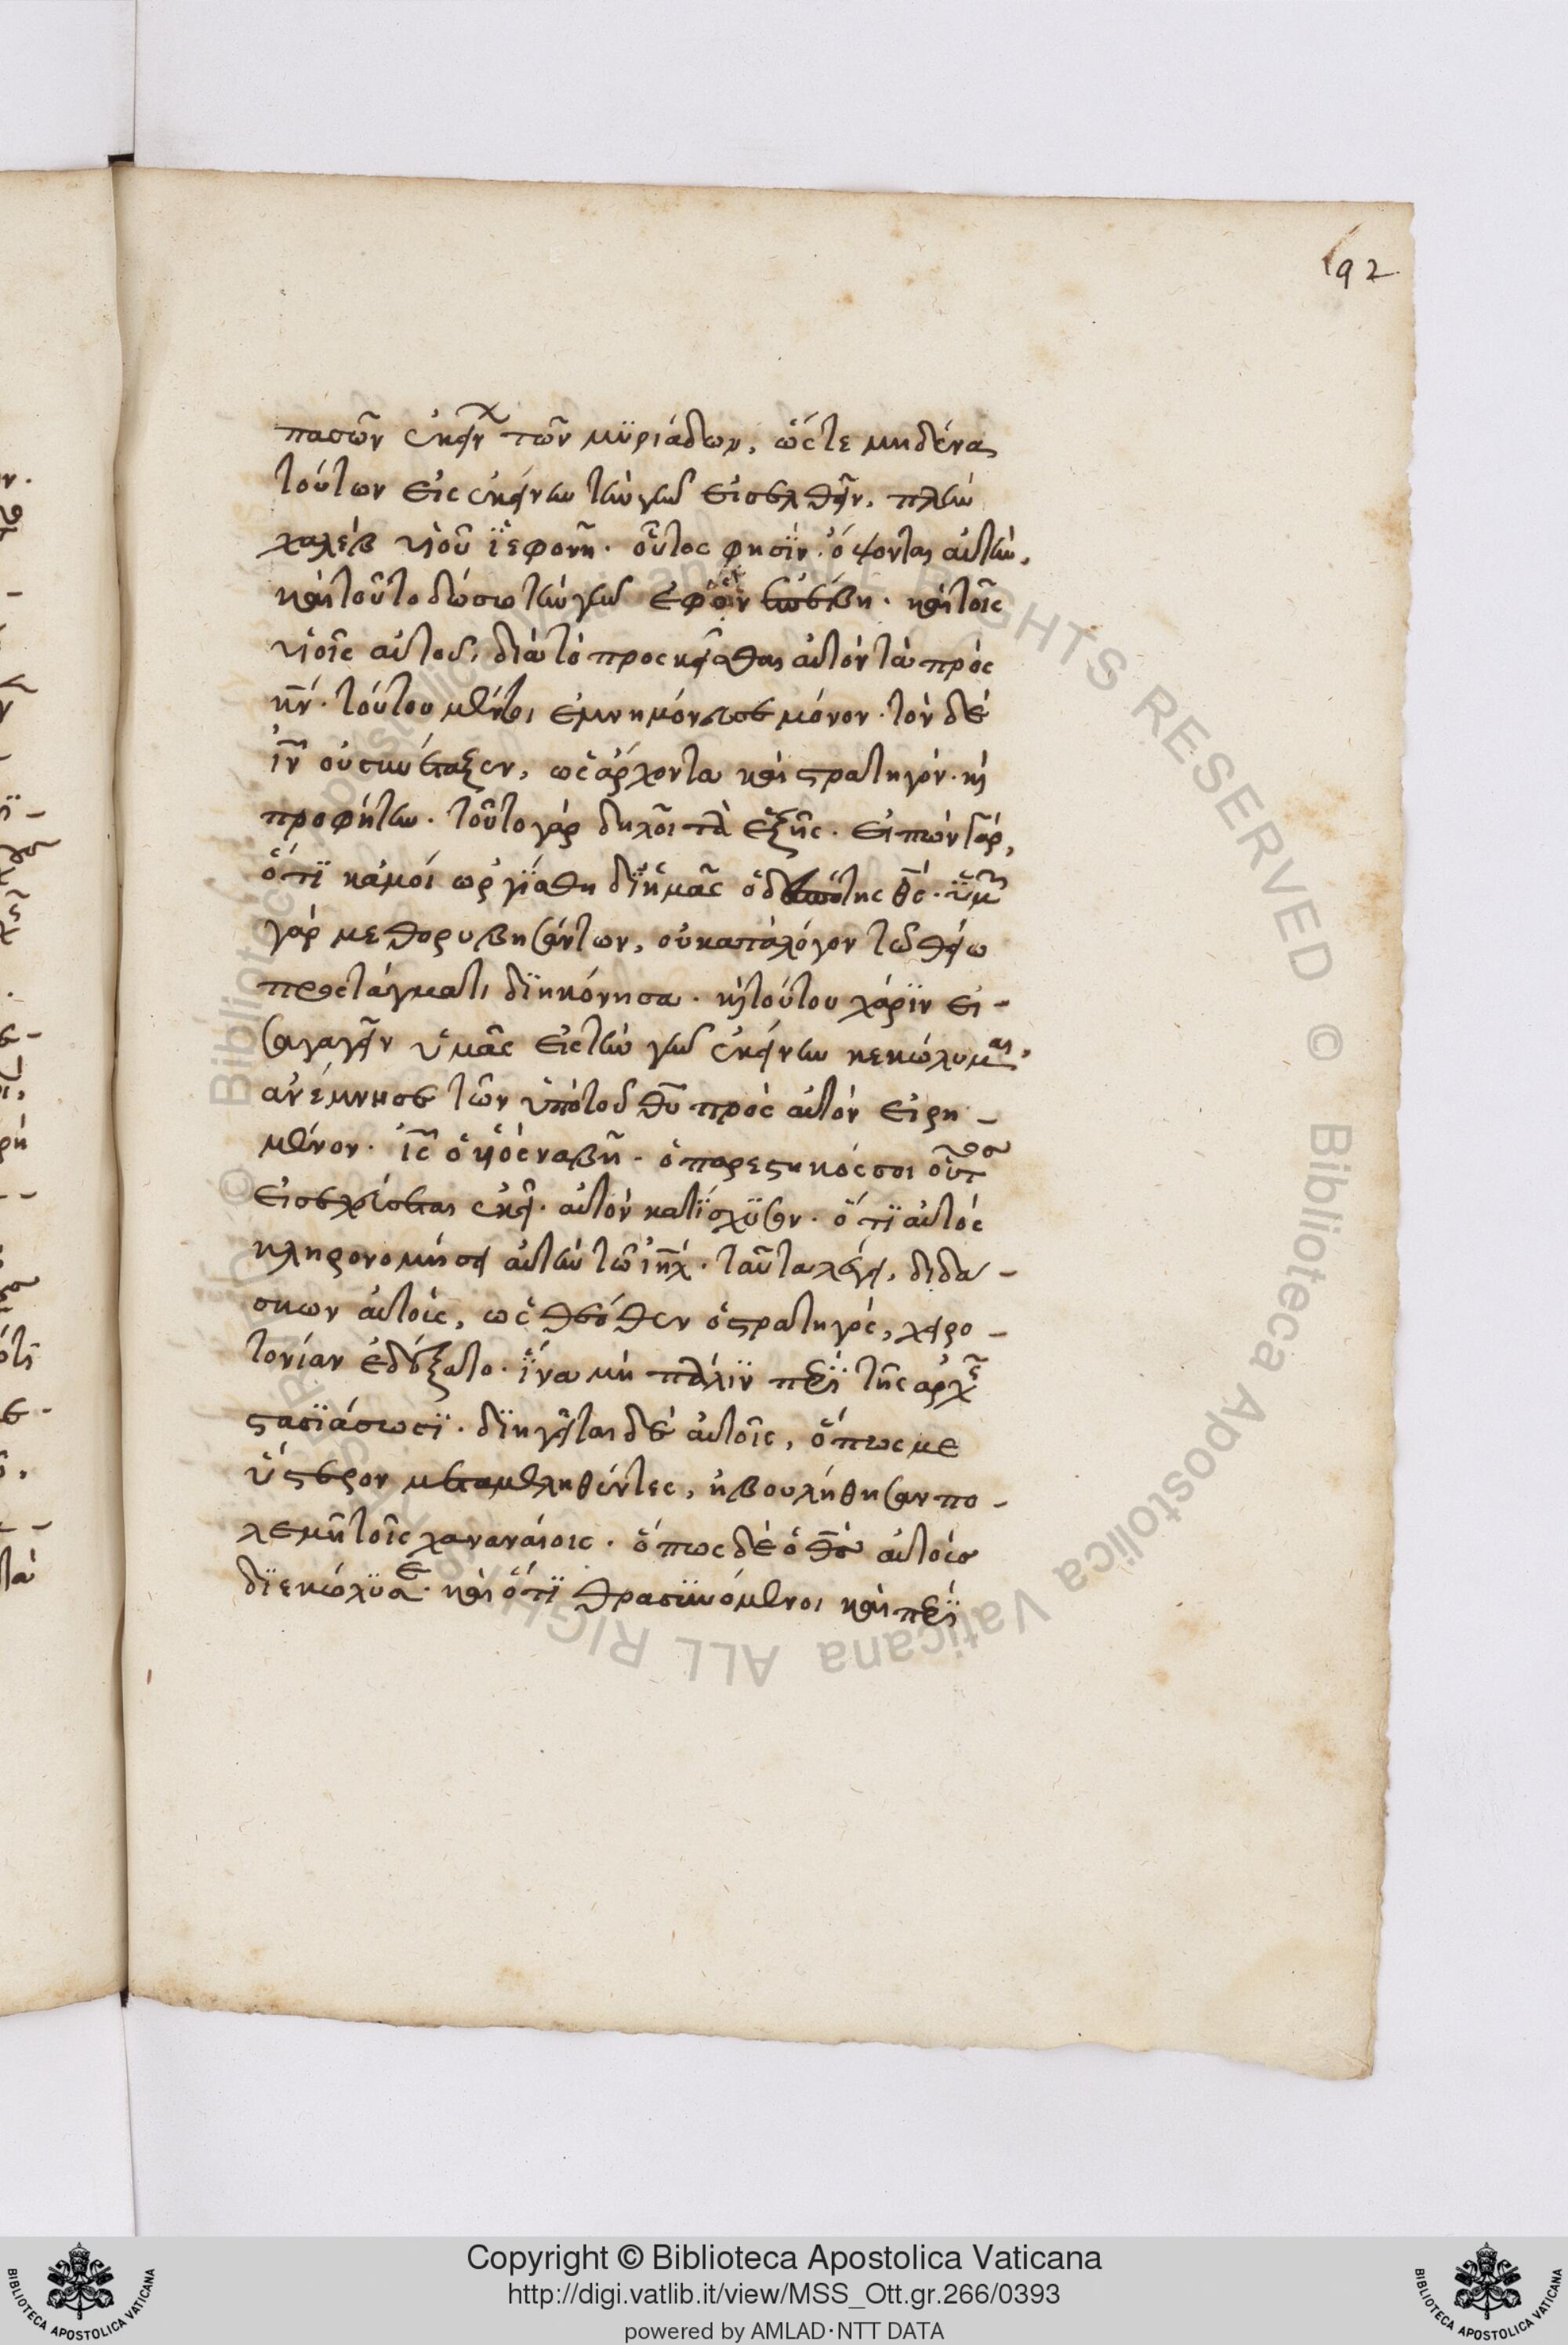 192
πασῶν ἐκείνων τῶν μϋριάδων, ὥστε μηδένα
τούτων εἰς ἐκείνην τὴν γῆν εἰσελθεῖν, πλὴν
χαλὲβ υἱοῦ ϊεφονῆ. οὗτος φησϊν ὄψονται αὐτὴν,
καὶ τοῦτο δώσω τὴν γῆν ἐφ ἣν ἐπέβη. καὶ τοῖς
υἱοῖς αὐτοῦ, διὰ τὸ προσκεῖσθαι αὐτὸν τὰ πρὸς
κν. τούτου μέντοι ἐμνημόνευσε μόνον. τὸν δὲ
ιν οὐ συνέταξεν, ὡς ἄρχοντα καὶ στρατηγόν. κὶ
προφήτην. τοῦτο γὰρ δηλοῖ τὰ ἑξῆς. εἰπὼν γὰρ,
ὅτϊ κἀμοί ὠργϊσθη δϊ ἡμᾶς ὁ δεσπότης θς. ὑμῶν
γάρ με θορυβησάντων, οὐ κατὰ λόγον τῶ θείω
προστάγματι δϊηκόνησα. κὶ τούτου χάρϊν εἰ-
σαγαγεῖν ὑμᾶς εἰς τὴν γῆν ἐκείνην κεκώλυμαι,
ἀνέμνησε τῶν ὑπὸ τοῦ θυ πρὸς αὐτὸν εἰρη-
μένον. ις ὁ υἱὸς ναβῆ. ὁ παρεστηκός σοι οὗτος
εἰσελεύσεται ἐκεῖ. αὐτὸν κατίσχϋσον. ὅτϊ αὐτὸς
κληρονομήσει αὐτὴν τῶ ιηλ. ταῦτα λέγει, διδα-
σκων αὐτοὺς, ὡς θεόθεν ὁ στρατηγὸς, χειρο-
τονίαν ἐδέξατο. ἵνα μὴ πάλϊν περὶ τῆς ἀρχῆς
στασϊάσωσϊ. δϊηγεῖται δὲ αὐτοῖς, ὅπως με
ὕστερον μεταμεληθέντες, ἠβουλήθησαν πο-
λεμεῖν τοῖς χαναναίοις. ὅπως δὲ ὁ θς αὐτοὺς
δϊεκώλϋσε. καὶ ὅτϊ θρασϋνόμενοι καὶ περὶ
Copyright © Biblioteca Apostolica Vaticana
http://digi.vatlib.it/view/MSS_Ott.gr.266/0393
powered by AMLAD·NTT DATA